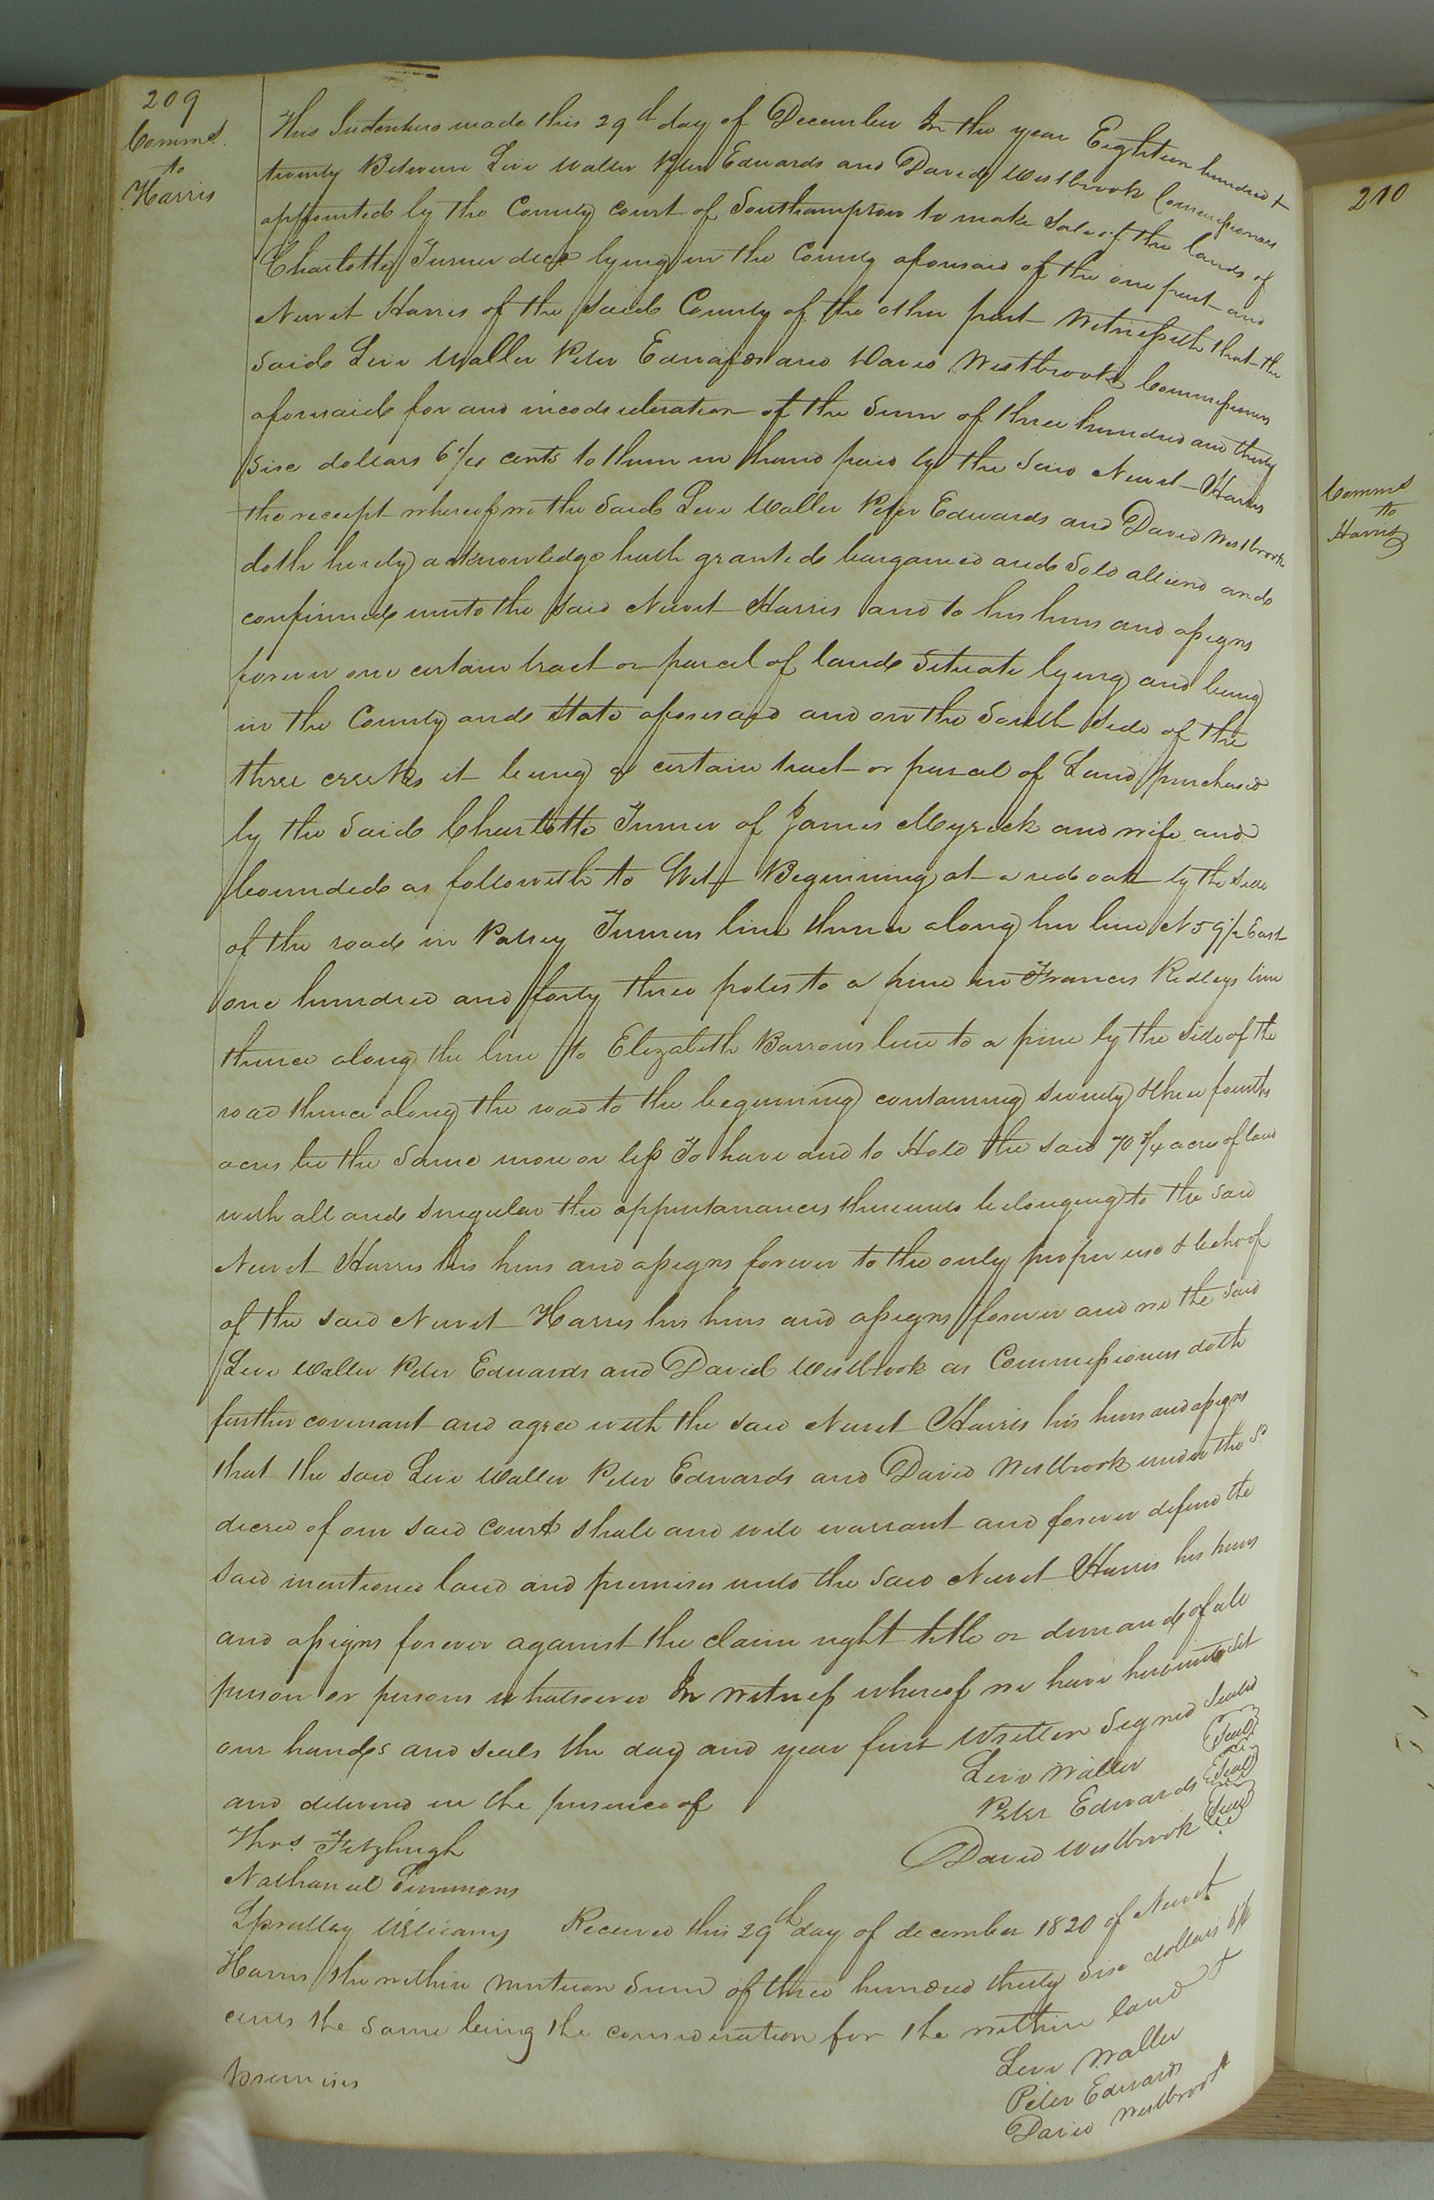 209
Comms.
to
Harris
This Indenture made this 29th day of December In the year Eighteen hundred &
twenty Between Levi Waller Peter Edwards and David Westbrook Commissioners
appointed by the County court of Southampton to make Sale of the lands of
Charlotte Turner decd lying in the County aforesaid of the one part and
Newit Harris of the said County of the other part Witnesseth that the
said Levi Waller Peter Edwards and David Westbrook Commissioners
aforesaid for and in consideration of the Sum of three hundred and thirty
six dollars 6 1/4 cents to them in hand paid by the said Newit Harris
the receipt whereof we the said Levi Waller Peter Edwards and David Westbrook
doth hereby acknowledge hath granted bargained and Sold aliend and
confirmed unto the said Newit Harris and to his heirs and assigns
forever one certain tract or parcel of land Situate lying and being
in the County and State aforesaid and on the South Side of the
three creeks it being a certain tract or parcel of Land purchased
by the said Charlotte Turner of James Myrick and wife and
bounded as followeth to Wit Beginning at a red oak by the side
of the road in Patsey Turners line thence along her line N 59 1/2 East
one hundred and forty three poles to a pine in Francis Ridleys line
thence along the line to Elizabeth Barrows line to a pine by the side of the
road thence along the road to the beginning containing seventy & three fourths
acres be the Same more or less To have and to Hold the said 70 3/4 acres of land
with all and singular the appurtanances thereunto belonging to the said
Newit Harris his heirs and assigns forever to the only proper use & behoof
of the said Newit Harris his heirs and assigns forever and we the said
Levi Waller Peter Edwards and David Westbrook as Commissioners doth
further covenant and agree with the said Newit Harris his heirs and assigns
that the said Levi Waller Peter Edwards and David Westbrook under the sd
decree of our said court shall and will warrant and forever defend the
said mentioned land and premises unto the said Newit Harris his heirs
and assigns forever against the claim right title or demand of all
person or persons whatsoever In witness whereof we have hereunto set
our hands and seals the day and year first written Signed Sealed
and delivered in the presence of
Levi Waller Seal
Peter Edwards Seal
David Westbrook Seal
Thos. Fitzhugh
Nathaniel Simmons
Spratley Williams Received this 29th day of december 1820 of Newit
Harris the within mention Sum of three hundred thirty six dollars 6 1/4
cents the same being the consideration for the within land &
premises
Levi Waller
Peter Edwards
David Westbrook
210
Comms
to
Harris